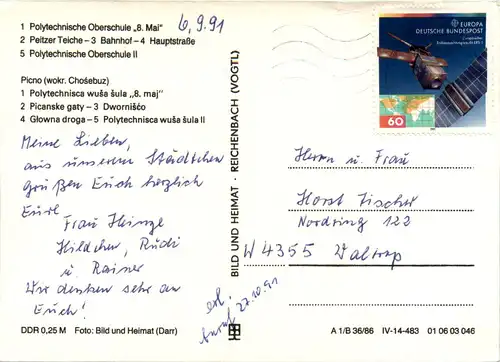 1 Polytechnische Oberschule „8. Mai"
2 Peitzer Teiche – 3 Bahnhof – 4 Hauptstraße
5 Polytechnische Oberschule II
6.9.91
Picno (wokr. Chośebuz)
1 Polytechnisca wuša šula „8. maj"
2 Picanske gaty – 3 Dwornišćo
4 Głowna droga – 5 Polytechnisca wuša šula II
Meine Lieben,
aus unserem Städtchen
grüßen Euch herzlich
Eure
Frau Heinze
Hildchen, Rudi
u. Rainer
Wir denken sehr an
Euch!
DDR 0,25 M Foto: Bild und Heimat (Darr)
BILD UND HEIMAT · REICHENBACH (VOGTL)
erl.
27.10.91
EUROPA
DEUTSCHE BUNDESPOST
60
Herrn u. Frau
Horst Fischer
Nordring 122
W 4355 Waltrop
A 1/B 36/86 IV-14-483 01 06 03 046